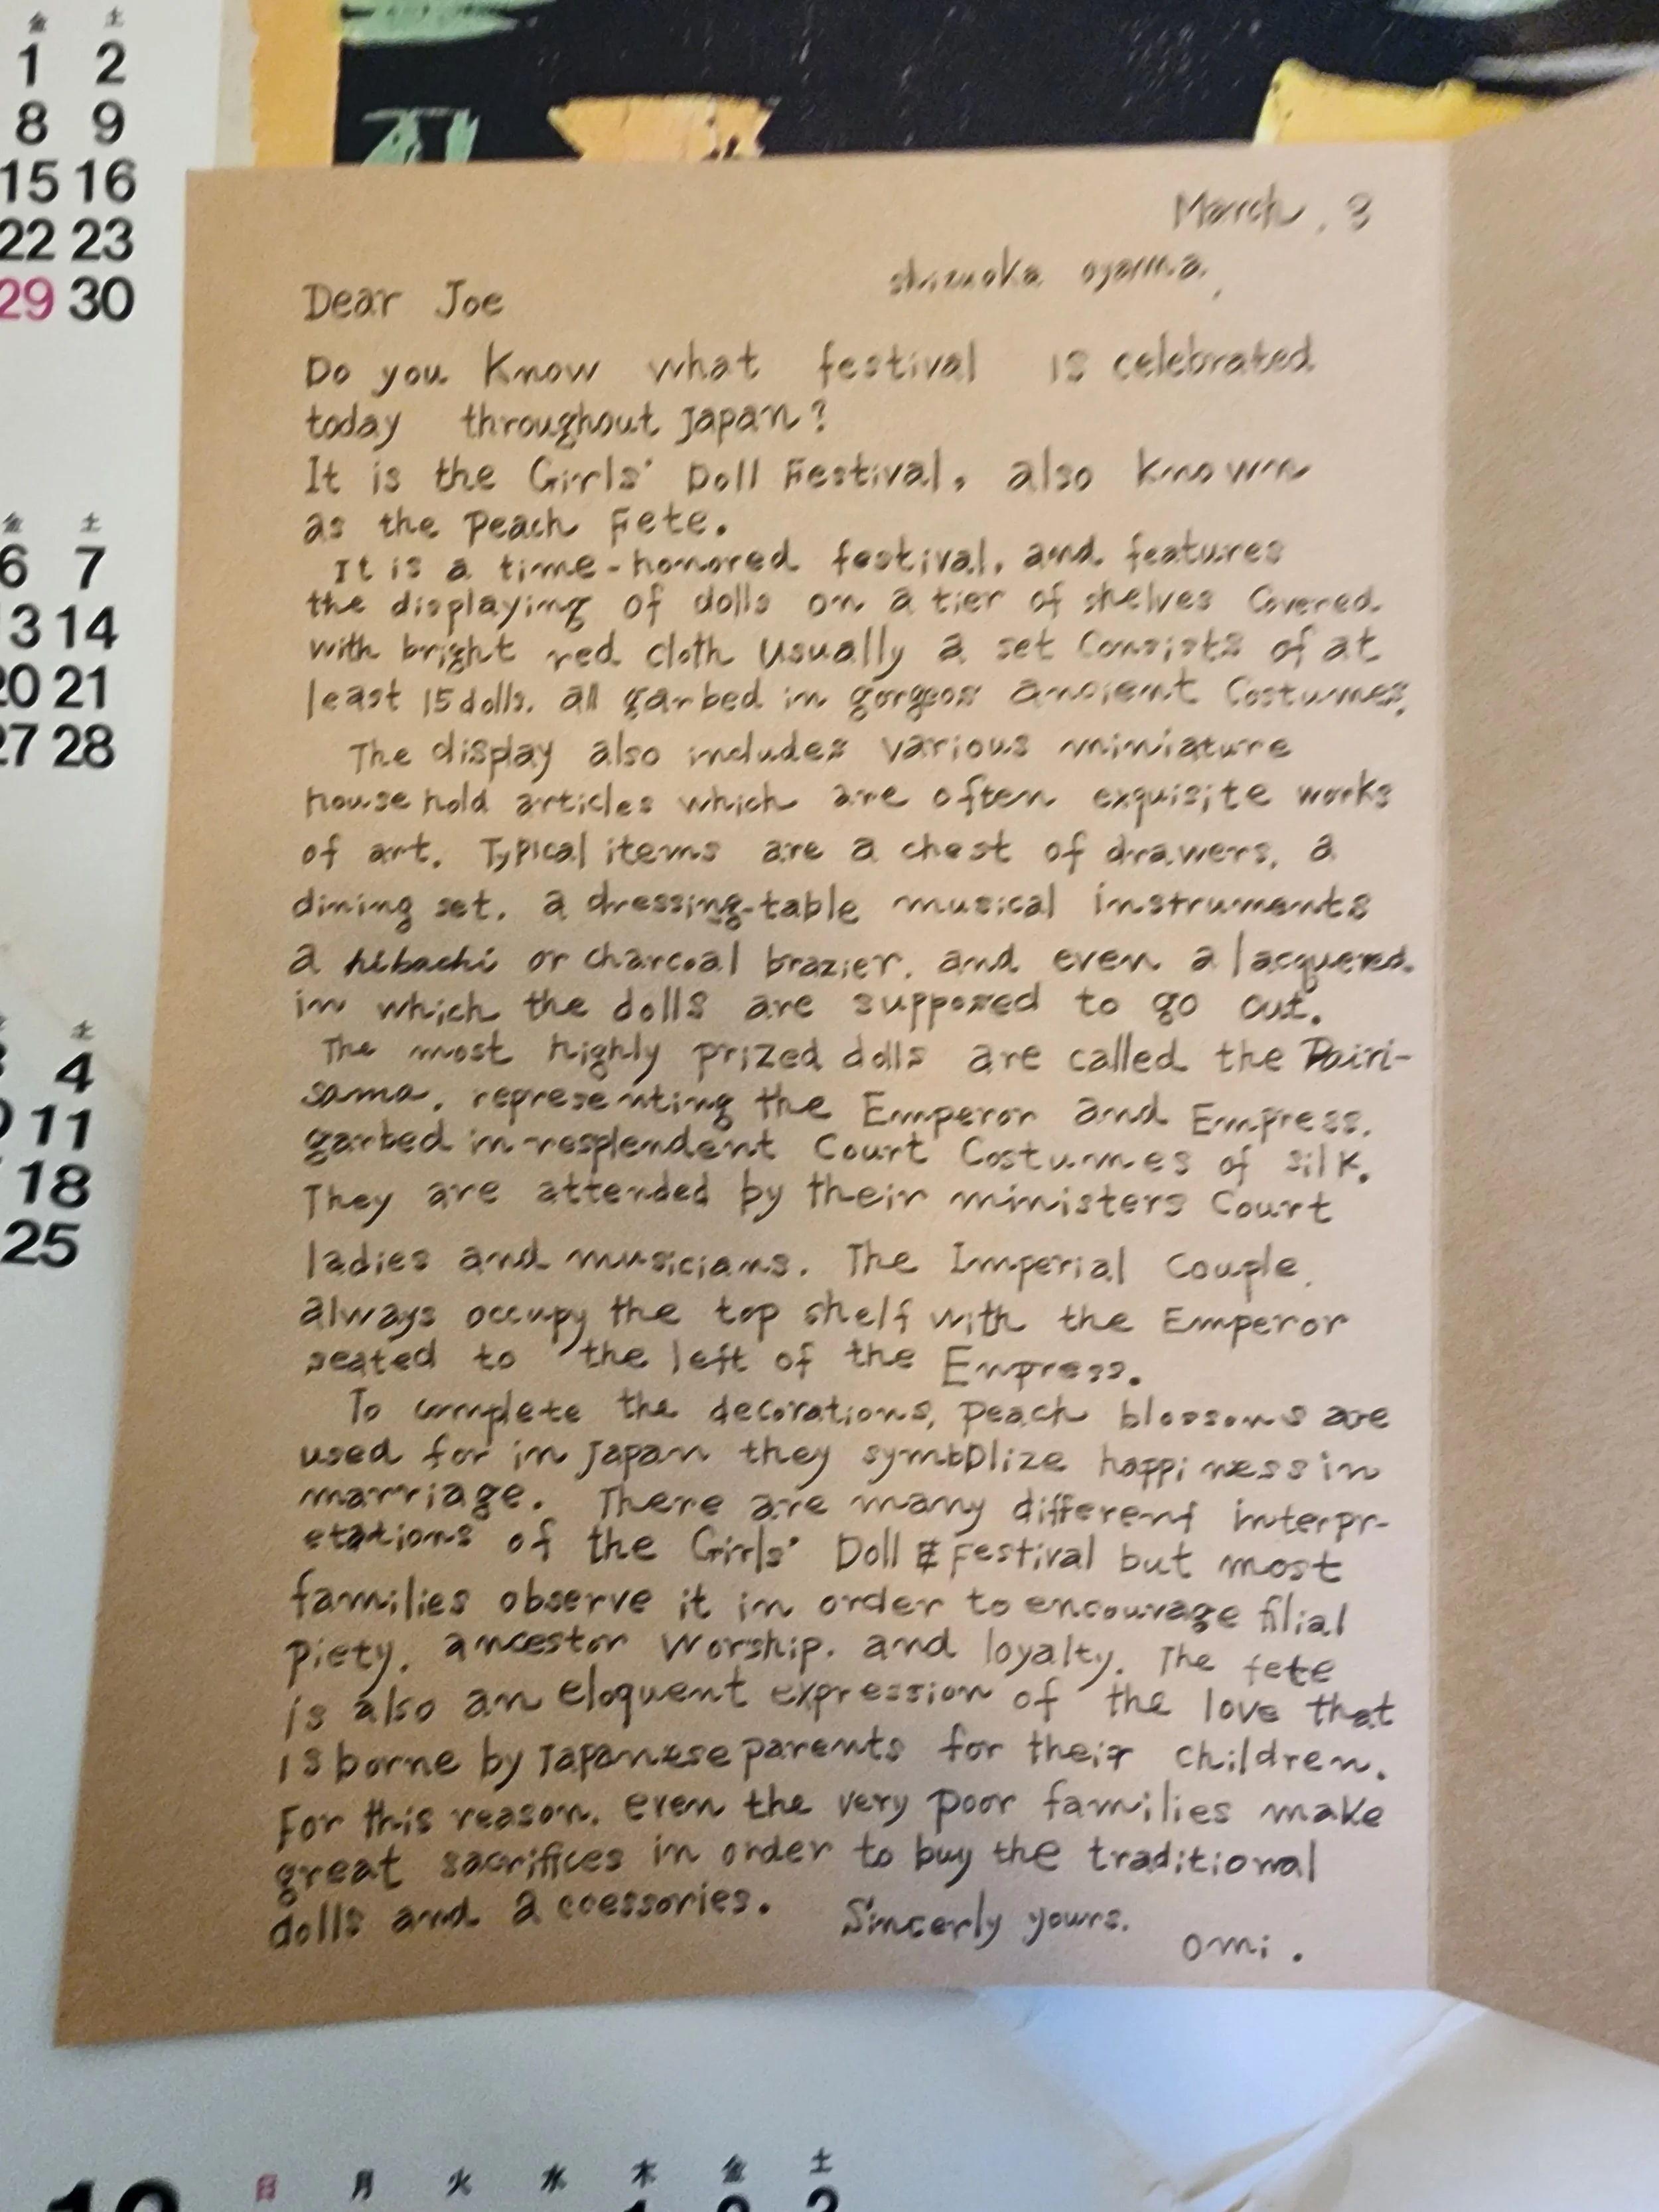 金 土
1 2
8 9
15 16
22 23
29 30
金 土
6 7
13 14
20 21
27 28
土
4
11
18
25
March, 3
shizuoka oyama,
Dear Joe
Do you Know what festival is celebrated
today throughout Japan?
It is the Girls' Doll Festival, also known
as the Peach Fete.
It is a time-honored festival, and features
the displaying of dolls on a tier of shelves Covered
with bright red cloth Usually a set Consists of at
least 15 dolls. all garbed in gorgeos ancient Costumes.
The display also includes various miniature
house hold articles which are often exquisite works
of art. Typical items are a chest of drawers, a
dining set, a dressing-table musical instruments
a hibachi or charcoal brazier, and even a lacquered
in which the dolls are supposed to go out.
The most highly prized dolls are called the Dairi-
sama, representing the Emperor and Empress.
garbed in resplendent Court Costumes of silk.
They are attended by their ministers Court
ladies and musicians. The Imperial Couple
always occupy the top shelf with the Emperor
seated to the left of the Empress.
To complete the decorations, peach blossoms are
used for in Japan they symbolize happiness in
marriage. There are many different interpr-
etations of the Girls' Doll Festival but most
families observe it in order to encourage filial
piety, ancestor worship, and loyalty. The fete
is also an eloquent expression of the love that
is borne by Japanese parents for their children.
For this reason, even the very poor families make
great sacrifices in order to buy the traditional
dolls and accessories. Sincerly yours.
omi.
日 月 火 水 木 金 土
1 2 3